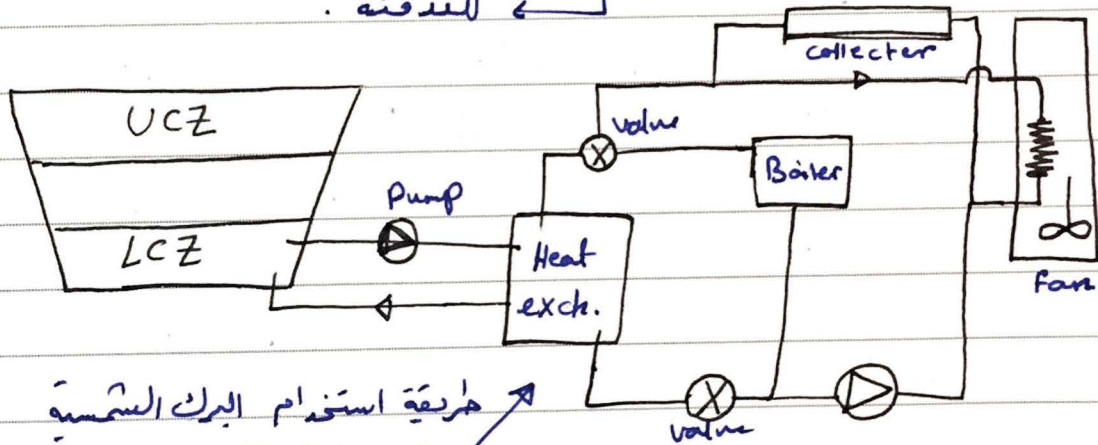 للتدفئة .
collecter
UCZ
valve
Boiler
Pump
LCZ
Heat
exch.
Fan
طريقة استخدام البرك الشمسية
valve